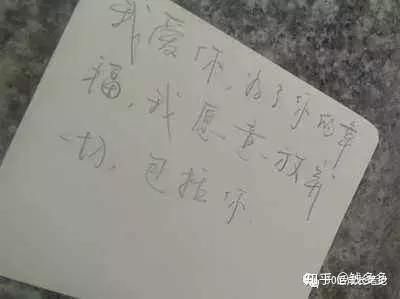 我爱你,为了你的幸
福,我愿意放弃一
切,包括你.
知乎 @钱多多